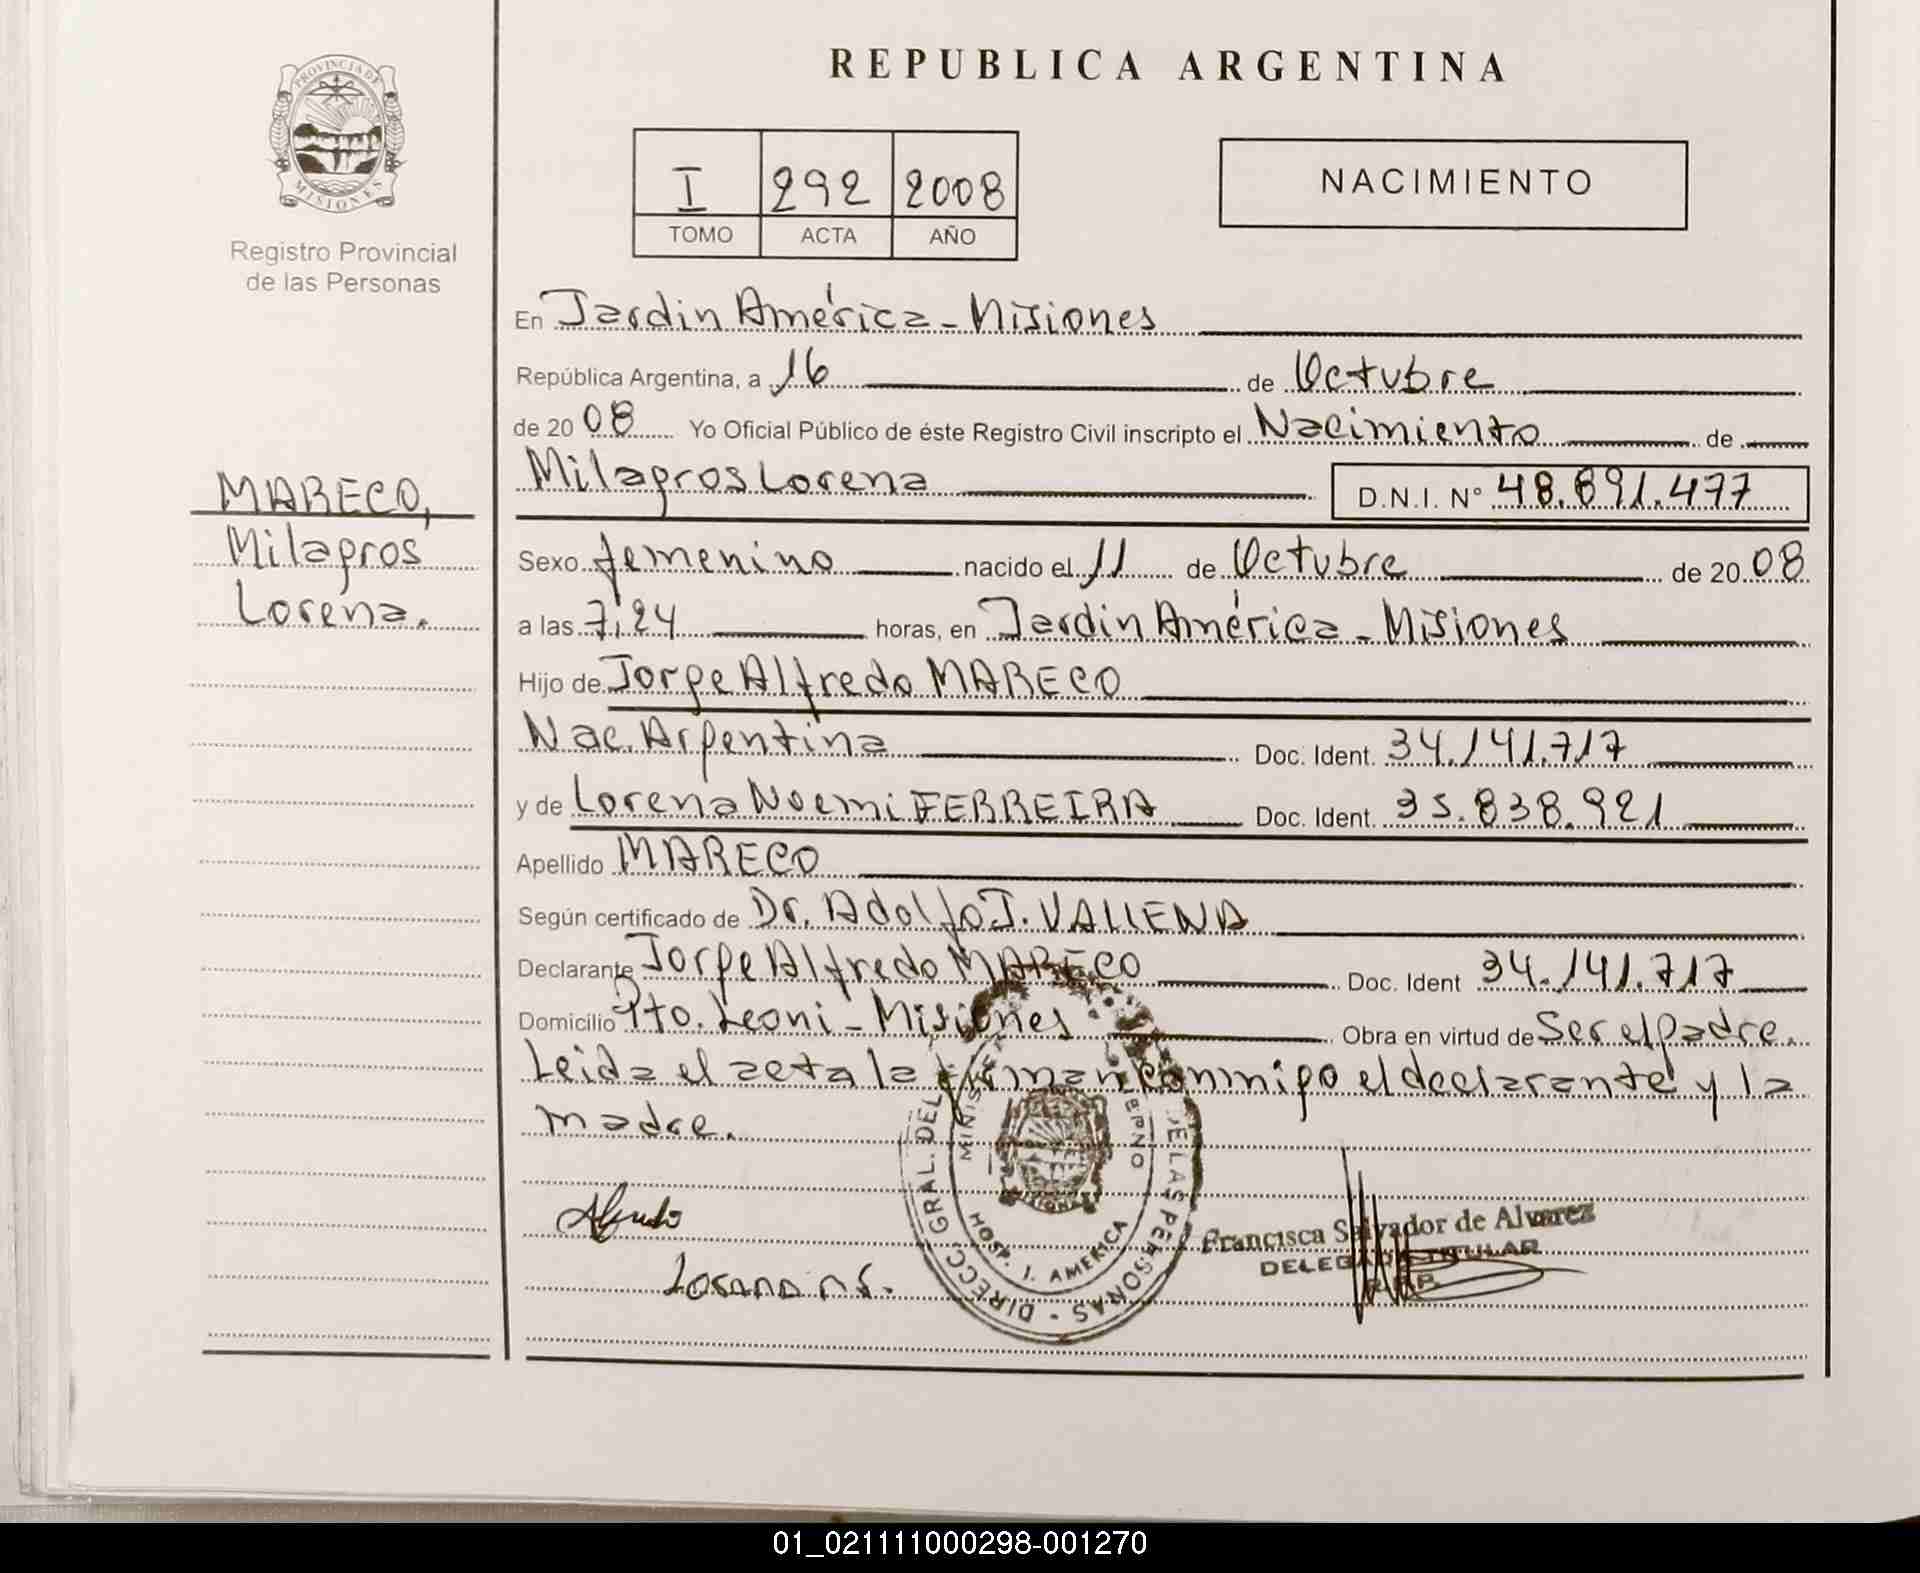 REPUBLICA ARGENTINA
PROVINCIA DE
MISIONES
Registro Provincial
de las Personas
I 292 2008
TOMO ACTA AÑO
NACIMIENTO
En Jardin América - Misiones
República Argentina, a 16 de Octubre
de 20 08 Yo Oficial Público de éste Registro Civil inscripto el Nacimiento de
Milagros Lorena D.N.I. Nº 48.891.477
MARECO,
Milagros
Lorena.
Sexo femenino nacido el 11 de Octubre de 20 08
a las 7,24 horas, en Jardin América - Misiones
Hijo de Jorge Alfredo MARECO
Nac. Argentina Doc. Ident. 34.141.717
y de Lorena Noemi FERREIRA Doc. Ident. 35.838.921
Apellido MARECO
Según certificado de Dr. Adolfo J. VALLENA
Declarante Jorge Alfredo MARECO Doc. Ident 34.141.717
Domicilio Pto. Leoni - Misiones Obra en virtud de Ser el padre.
Leida el acta la firman conmigo el declarante y la
madre.
DIRECC GRAL. DEL DE LAS PERSONAS
HOSP. J. AMERICA
Francisca Salvador de Alvarez
DELEGADA TITULAR
R.P.P.
01_021111000298-001270